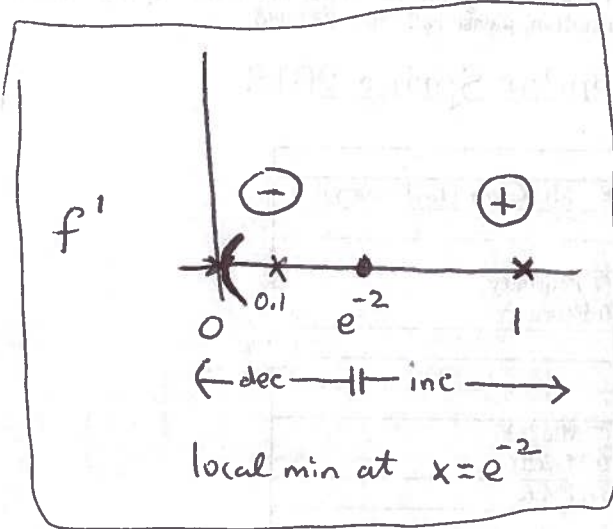 f'
⊖ ⊕
0 0.1 e^-2 1
←dec—||—inc→
local min at x=e^-2